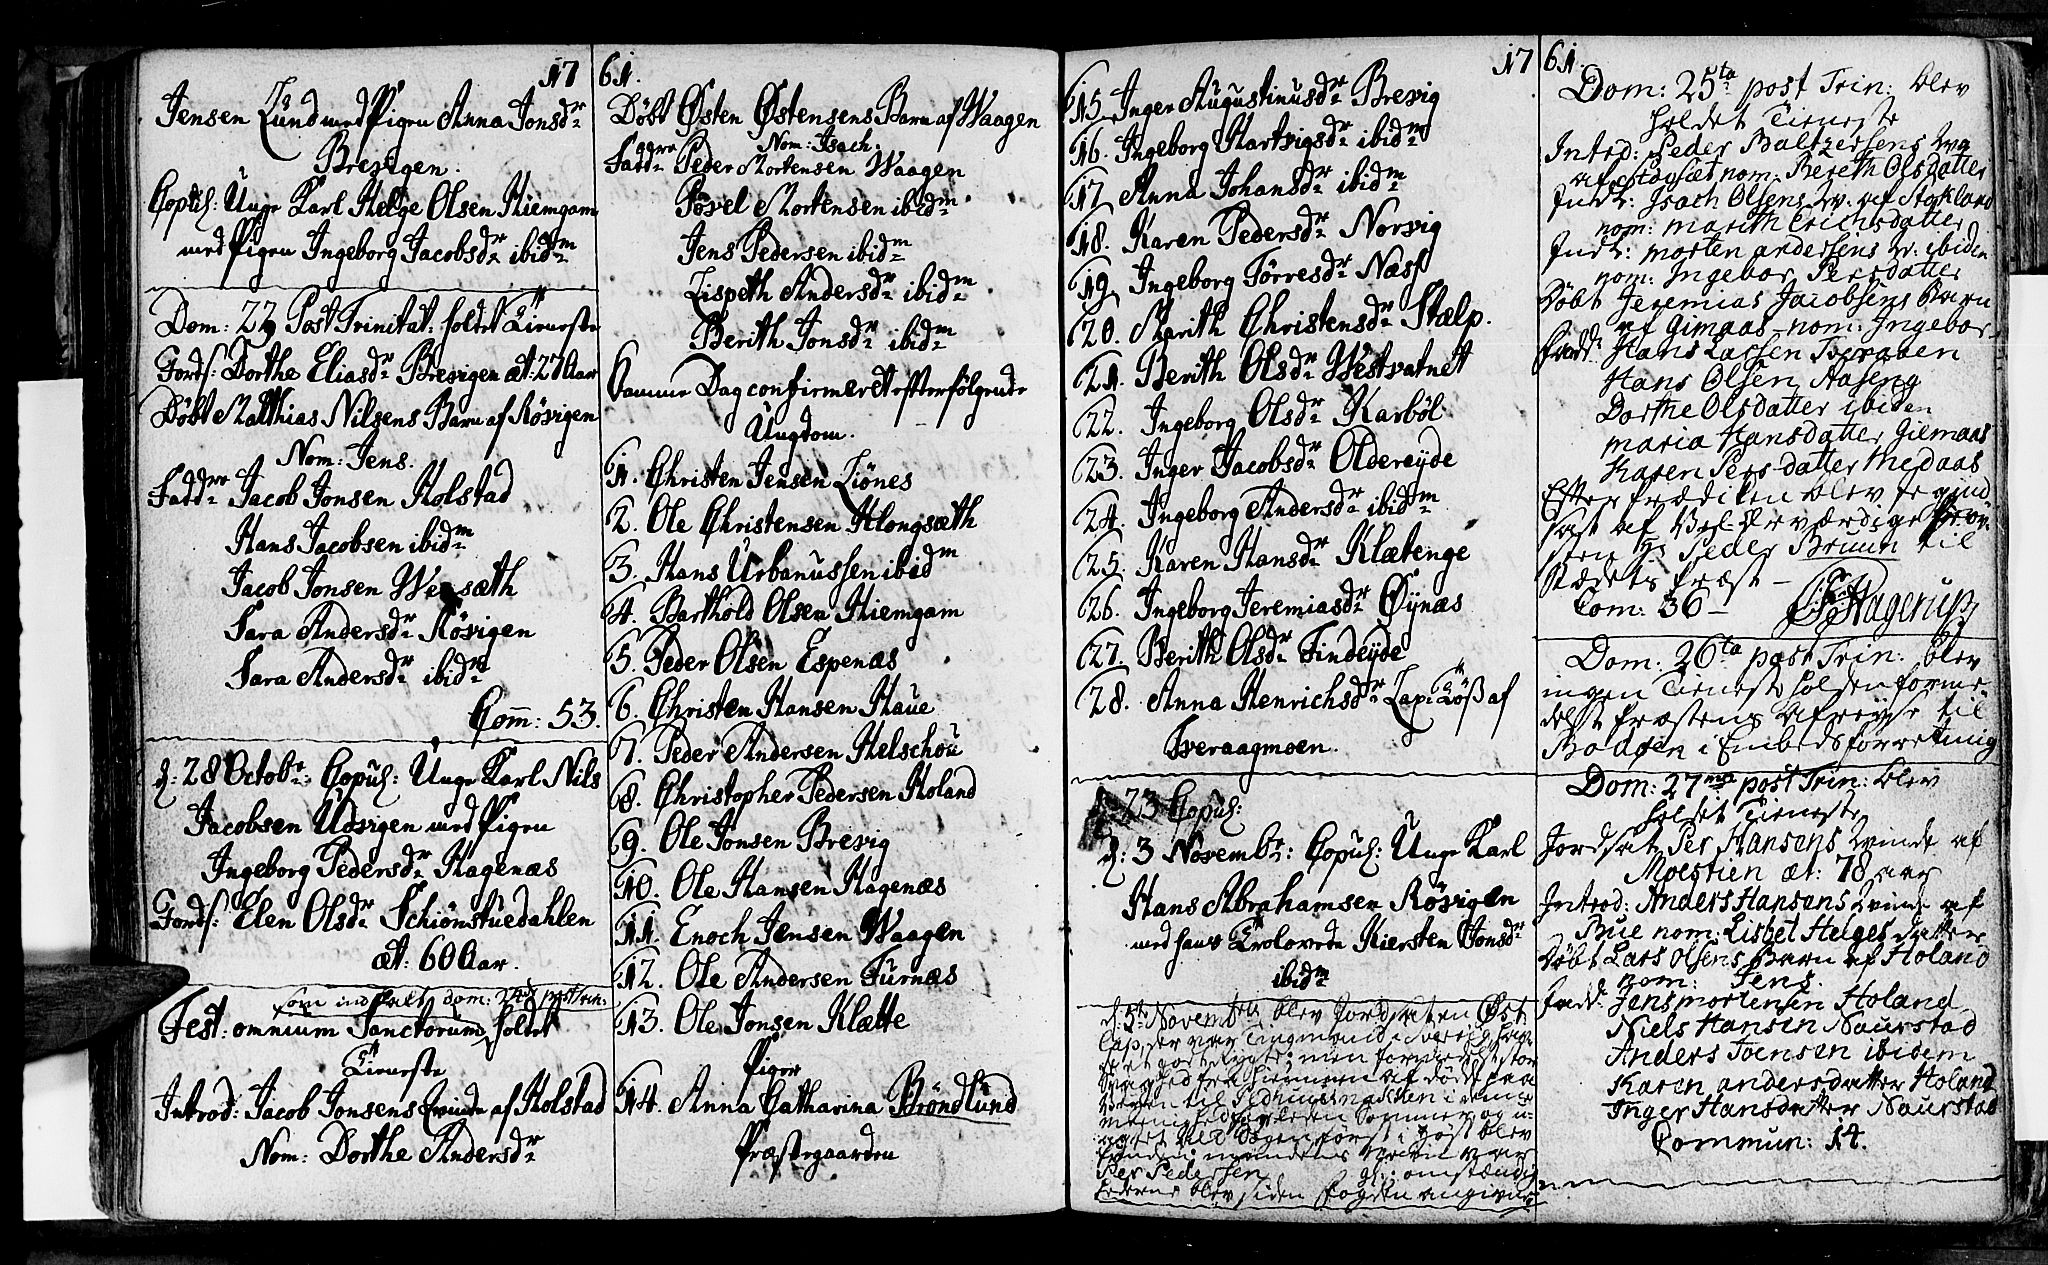 17
Jensen Lund med Pigen Anna Jonsdr
Brevigen.
Copul: Unge Karl Helge Olsen Hiemgam
med Pigen Ingeborg Jacobsdr ibidm
Dom: 22 Post Trinitat: holdet Tieneste
Jords: Dorthe Eliasdr Brevigen æt: 27 Aar
Döbt Matthias Nilsens Barn af Rövigen
Nom: Jens.
Faddre Jacob Jonsen Holstad
Hans Jacobsen ibidm
Jacob Jonsen Wensæth
Sara Andersdr Rövigen
Sara Andersdr ibidr
Com: 53.
d: 28 Octobr: Copul: Unge Karl Nils
Jacobsen Udvigen med Pigen
Ingeborg Pedersdr Hagenæs
Jords: Elen Olsdr Schiönstuedahlen
æt: 60 Aar.
som indfalt dom: 24de post trin:
Fest: omnium Sanctorum holdet
Tieneste
Introd: Jacob Jonsens Qvinde af Holstad
Nom: Dorthe Andersdr
61.
Döbt Østen Østensens Barn af Waagen
Nom: Isach.
Faddre Peder Mortensen Waagen
Povel Mortensen ibidm
Jens Pedersen ibidm
Lispeth Andersdr ibidm
Berith Jonsdr ibidm
Samme Dag confirmeret efterfølgende
Ungdom.
1. Christen Jensen Liönes
2. Ole Christensen Hlongsæth
3. Hans Urbanussen ibidm
4. Barthold Olsen Hiemgam
5. Peder Olsen Espenæs
6. Christen Hansen Haue
7. Peder Andersen Helschou
8. Christopher Pedersen Holand
9. Ole Jonsen Brevig
10. Ole Hansen Hagenæs
11. Enoch Jensen Waagen
12. Ole Andersen Furnæs
13. Ole Jonsen Klætte
Piger
14. Anna Catharina Bröndlund
Præstegaarden
17
15. Inger Augustinusdr Brevig
16. Ingeborg Hartvigsdr ibidm
17 Anna Johansdr ibidm
18. Karen Pedersdr Norvig
19 Ingeborg Törresdr Næss
20. Marith Christensdr Stælp.
21. Berith Olsdr Westvatnet
22. Ingeborg Olsdr Karböl
23. Inger Jacobsdr Oldereyde
24. Ingeborg Andersdr ibidm
25. Karen Hansdr Klætenge
26. Ingeborg Jeremiasdr Øynæs
27. Berith Olsdr Findeyde
28. Anna Henrichsdr Lap: Löß af
Tveraagmoen.
d. 23 Copul:
d: 3 Novembr: Copul: Unge Karl
Hans Abrahamsen Rövigen
med hans Trolovede Kiersten Jonsdr
ibidm
d: 5te Novembris blev Jordsat en Øst
Lap, der var
got Rygte; men formedelst stor
Svaghed fra af döde paa
Veyen til i denne
menighed Sommer og
først i Høst blev
funden; mandens Navn var
Per Pedersen omstændig
hederne blev siden fogden angivne
61.
Dom: 25ta post Trin: blev
holdet Tieneste
Introd: Peder Baltzersens Qva
af Stavset nom: Bereth Olsdatter
Indl: Isach Olsens Qv: af Stokland
nom: marith Erichsdatter
Indl: morten andersens Qv: ibiden
nom: Ingebor Persdatter
Döbt Jeremias Jacobsens Barn
af Gimaas nom: Ingebor
Fadd: Hans Lassen Tveraaen
Hans Olsen Aaseng
Dorthe Olsdatter ibiden
maria Hansdatter Gilmaas
Karen Persdatter Medaas
Efter Prædiken blev ieg ind
sat af Vel-Ærværdige Prov
sten Hr Peder Bruun til
Stædets Præst –
Com: 36 – Hagerup
Dom: 26ta post Trin: blev
ingen Tieneste holden forme
delst Præstens Afreyse til
Bodøen i Embedsforretning
Dom: 27ma post Trin: blev
holdet Tieneste
Jordsat Per Hansens Qvinde af
Moestien æt: 78 aar
Introd: Anders Hansens Qvinde af
Bue nom: Lisbet Helgesdatter
Döbt Lars Olsens Barn af Holand
nom: Jens.
Fadd: Jens mortensen Holand
Niels Hansen Naurstad
Anders Joensen ibidem
Karen andersdatter Holand
Inger Hansdatter Naurstad
Commun: 14.